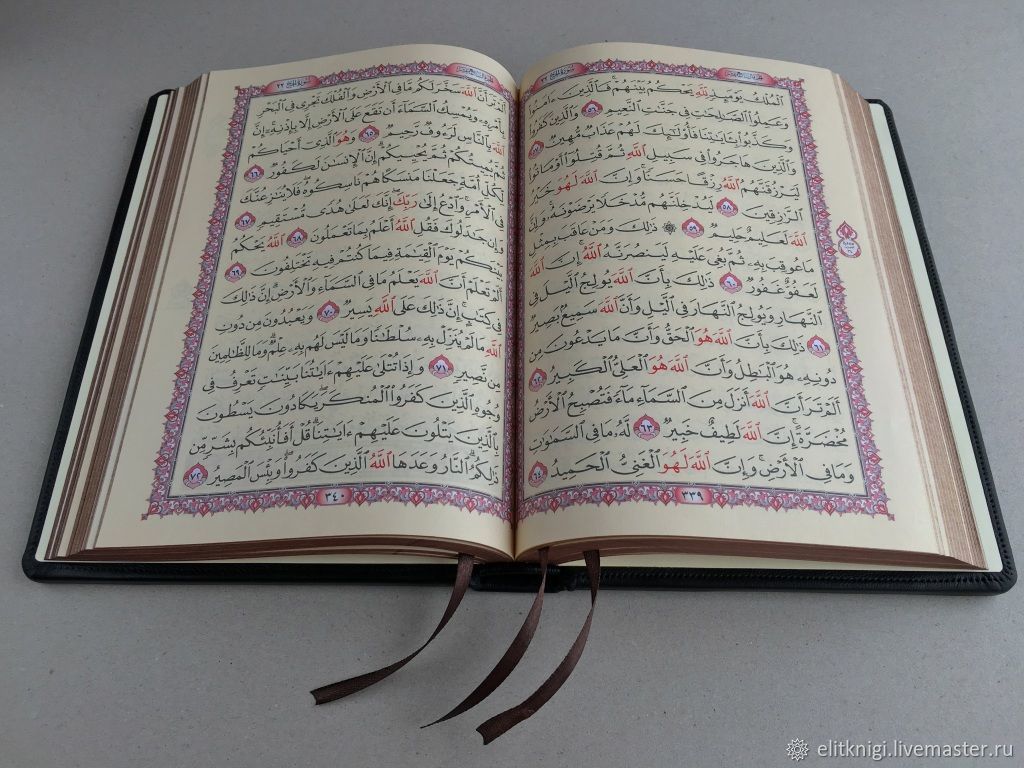 سورة الحج ٢٢
ٱلۡمُلۡكُ يَوۡمَئِذٖ لِّلَّهِ يَحۡكُمُ بَيۡنَهُمۡۚ فَٱلَّذِينَ ءَامَنُواْ
وَعَمِلُواْ ٱلصَّٰلِحَٰتِ فِي جَنَّٰتِ ٱلنَّعِيمِ ٥٦ وَٱلَّذِينَ كَفَرُواْ
وَكَذَّبُواْ بِـَٔايَٰتِنَا فَأُوْلَٰٓئِكَ لَهُمۡ عَذَابٞ مُّهِينٞ ٥٧
وَٱلَّذِينَ هَاجَرُواْ فِي سَبِيلِ ٱللَّهِ ثُمَّ قُتِلُوٓاْ أَوۡ مَاتُواْ
لَيَرۡزُقَنَّهُمُ ٱللَّهُ رِزۡقًا حَسَنٗاۚ وَإِنَّ ٱللَّهَ لَهُوَ خَيۡرُ
ٱلرَّٰزِقِينَ ٥٨ لَيُدۡخِلَنَّهُم مُّدۡخَلٗا يَرۡضَوۡنَهُۥۚ وَإِنَّ
ٱللَّهَ لَعَلِيمٌ حَلِيمٞ ٥٩ ۞ ذَٰلِكَۖ وَمَنۡ عَاقَبَ بِمِثۡلِ
مَا عُوقِبَ بِهِۦ ثُمَّ بُغِيَ عَلَيۡهِ لَيَنصُرَنَّهُ ٱللَّهُۚ إِنَّ ٱللَّهَ
لَعَفُوٌّ غَفُورٞ ٦٠ ذَٰلِكَ بِأَنَّ ٱللَّهَ يُولِجُ ٱلَّيۡلَ فِي
ٱلنَّهَارِ وَيُولِجُ ٱلنَّهَارَ فِي ٱلَّيۡلِ وَأَنَّ ٱللَّهَ سَمِيعُۢ بَصِيرٞ
٦١ ذَٰلِكَ بِأَنَّ ٱللَّهَ هُوَ ٱلۡحَقُّ وَأَنَّ مَا يَدۡعُونَ مِن
دُونِهِۦ هُوَ ٱلۡبَٰطِلُ وَأَنَّ ٱللَّهَ هُوَ ٱلۡعَلِيُّ ٱلۡكَبِيرُ ٦٢
أَلَمۡ تَرَ أَنَّ ٱللَّهَ أَنزَلَ مِنَ ٱلسَّمَآءِ مَآءٗ فَتُصۡبِحُ ٱلۡأَرۡضُ
مُخۡضَرَّةًۚ إِنَّ ٱللَّهَ لَطِيفٌ خَبِيرٞ ٦٣ لَّهُۥ مَا فِي ٱلسَّمَٰوَٰتِ
وَمَا فِي ٱلۡأَرۡضِۚ وَإِنَّ ٱللَّهَ لَهُوَ ٱلۡغَنِيُّ ٱلۡحَمِيدُ ٦٤
٣٣٩
سورة الحج ٢٢
أَلَمۡ تَرَ أَنَّ ٱللَّهَ سَخَّرَ لَكُم مَّا فِي ٱلۡأَرۡضِ وَٱلۡفُلۡكَ تَجۡرِي فِي ٱلۡبَحۡرِ
بِأَمۡرِهِۦ وَيُمۡسِكُ ٱلسَّمَآءَ أَن تَقَعَ عَلَى ٱلۡأَرۡضِ إِلَّا بِإِذۡنِهِۦٓۚ إِنَّ
ٱللَّهَ بِٱلنَّاسِ لَرَءُوفٞ رَّحِيمٞ ٦٥ وَهُوَ ٱلَّذِيٓ أَحۡيَاكُمۡ
ثُمَّ يُمِيتُكُمۡ ثُمَّ يُحۡيِيكُمۡۗ إِنَّ ٱلۡإِنسَٰنَ لَكَفُورٞ ٦٦
لِّكُلِّ أُمَّةٖ جَعَلۡنَا مَنسَكًا هُمۡ نَاسِكُوهُۖ فَلَا يُنَٰزِعُنَّكَ
فِي ٱلۡأَمۡرِۚ وَٱدۡعُ إِلَىٰ رَبِّكَۖ إِنَّكَ لَعَلَىٰ هُدٗى مُّسۡتَقِيمٖ ٦٧
وَإِن جَٰدَلُوكَ فَقُلِ ٱللَّهُ أَعۡلَمُ بِمَا تَعۡمَلُونَ ٦٨ ٱللَّهُ يَحۡكُمُ
بَيۡنَكُمۡ يَوۡمَ ٱلۡقِيَٰمَةِ فِيمَا كُنتُمۡ فِيهِ تَخۡتَلِفُونَ ٦٩
أَلَمۡ تَعۡلَمۡ أَنَّ ٱللَّهَ يَعۡلَمُ مَا فِي ٱلسَّمَآءِ وَٱلۡأَرۡضِۚ إِنَّ ذَٰلِكَ
فِي كِتَٰبٍۚ إِنَّ ذَٰلِكَ عَلَى ٱللَّهِ يَسِيرٞ ٧٠ وَيَعۡبُدُونَ مِن دُونِ
ٱللَّهِ مَا لَمۡ يُنَزِّلۡ بِهِۦ سُلۡطَٰنٗا وَمَا لَيۡسَ لَهُم بِهِۦ عِلۡمٞۗ وَمَا لِلظَّٰلِمِينَ
مِن نَّصِيرٖ ٧١ وَإِذَا تُتۡلَىٰ عَلَيۡهِمۡ ءَايَٰتُنَا بَيِّنَٰتٖ تَعۡرِفُ فِي
وُجُوهِ ٱلَّذِينَ كَفَرُواْ ٱلۡمُنكَرَۖ يَكَادُونَ يَسۡطُونَ
بِٱلَّذِينَ يَتۡلُونَ عَلَيۡهِمۡ ءَايَٰتِنَاۗ قُلۡ أَفَأُنَبِّئُكُم بِشَرّٖ مِّن
ذَٰلِكُمُۚ ٱلنَّارُ وَعَدَهَا ٱللَّهُ ٱلَّذِينَ كَفَرُواْۖ وَبِئۡسَ ٱلۡمَصِيرُ ٧٢
٣٤٠
elitknigi.livemaster.ru